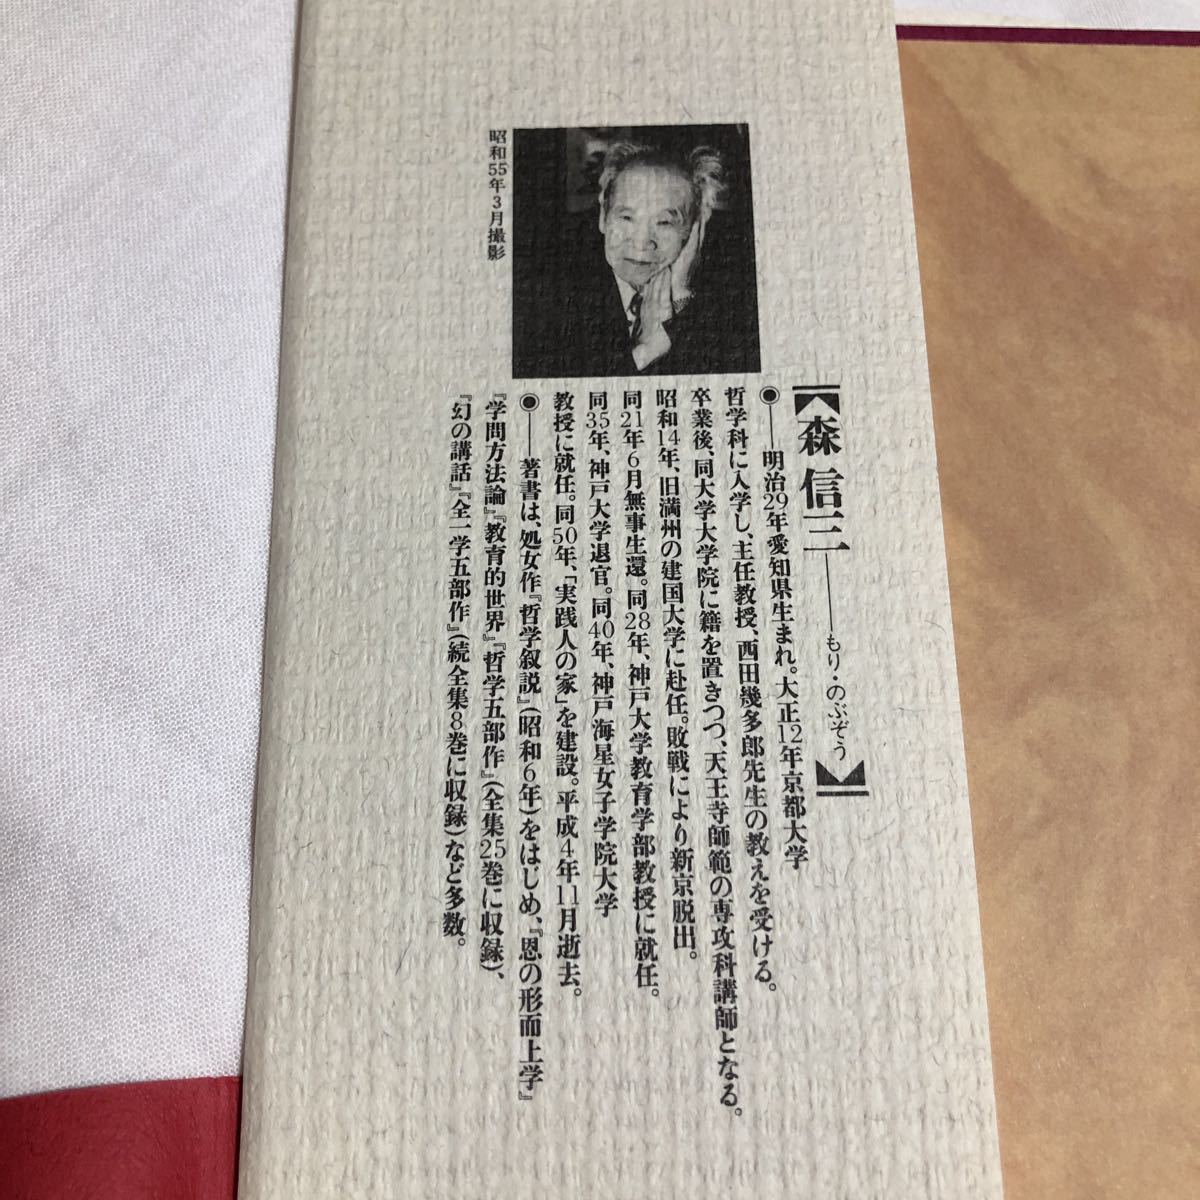 昭和55年3月撮影
【森 信三――もり・のぶぞう】
◉――明治29年愛知県生まれ。大正12年京都大学
哲学科に入学し、主任教授、西田幾多郎先生の教えを受ける。
卒業後、同大学大学院に籍を置きつつ、天王寺師範の専攻科講師となる。
昭和14年、旧満州の建国大学に赴任。敗戦により新京脱出。
同21年6月無事生還。同28年、神戸大学教育学部教授に就任。
同35年、神戸大学退官。同40年、神戸海星女子学院大学
教授に就任。同50年、「実践人の家」を建設。平成4年11月逝去。
◉――著書は、処女作『哲学叙説』(昭和6年)をはじめ、『恩の形而上学』
『学問方法論』『教育的世界』『哲学五部作』(全集25巻に収録)、
『幻の講話』『全一学五部作』(続全集8巻に収録)など多数。